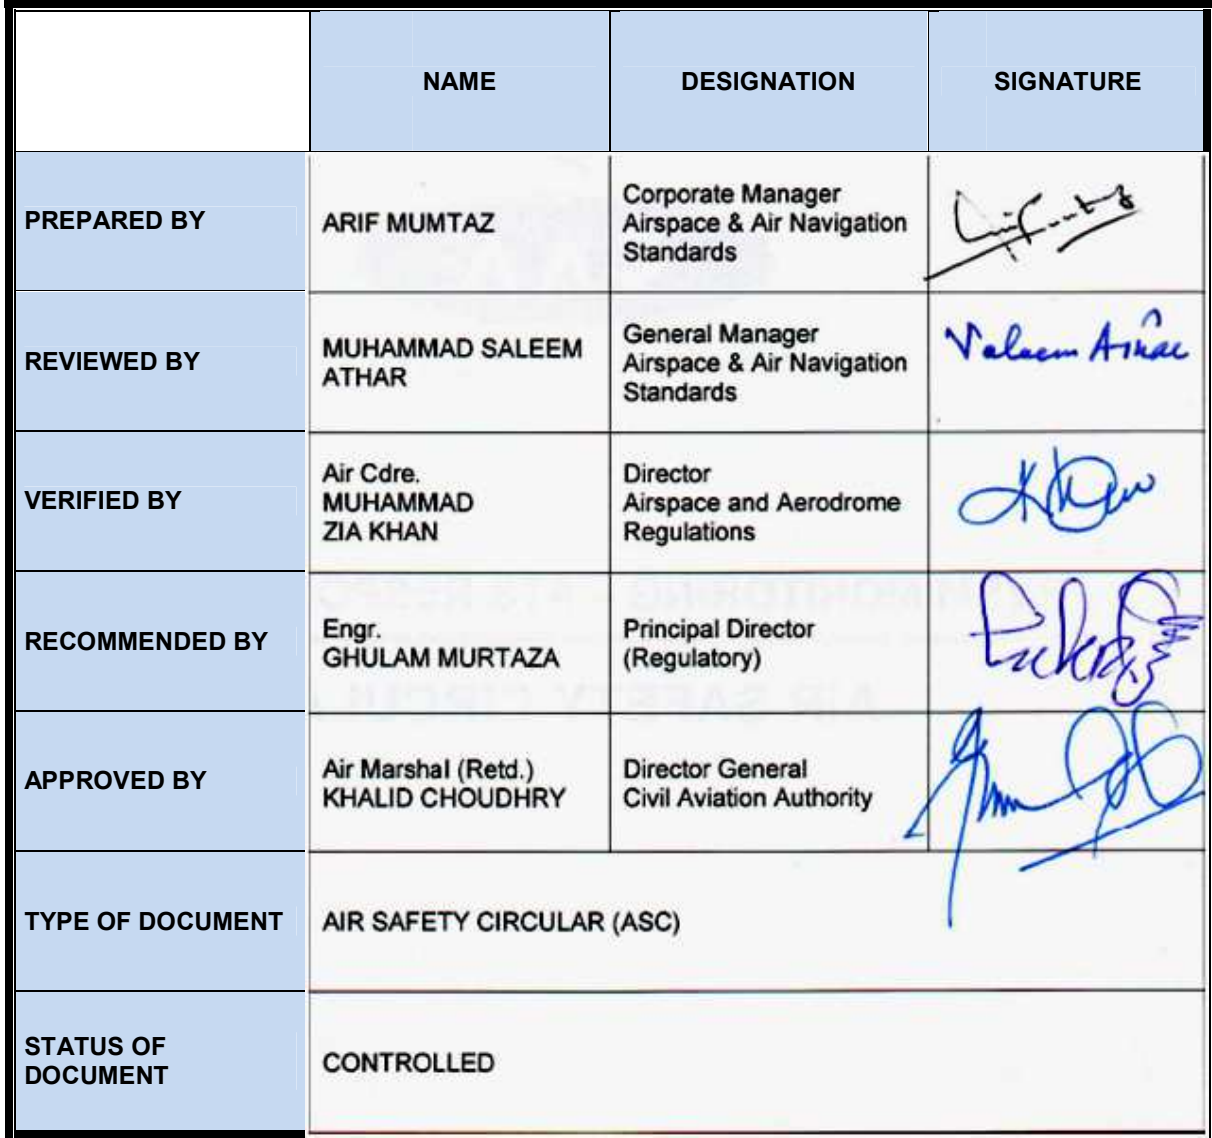 NAME DESIGNATION SIGNATURE
PREPARED BY
ARIF MUMTAZ
Corporate Manager
Airspace & Air Navigation
Standards
REVIEWED BY
MUHAMMAD SALEEM
ATHAR
General Manager
Airspace & Air Navigation
Standards
VERIFIED BY
Air Cdre.
MUHAMMAD
ZIA KHAN
Director
Airspace and Aerodrome
Regulations
RECOMMENDED BY
Engr.
GHULAM MURTAZA
Principal Director
(Regulatory)
APPROVED BY
Air Marshal (Retd.)
KHALID CHOUDHRY
Director General
Civil Aviation Authority
TYPE OF DOCUMENT
AIR SAFETY CIRCULAR (ASC)
STATUS OF
DOCUMENT
CONTROLLED